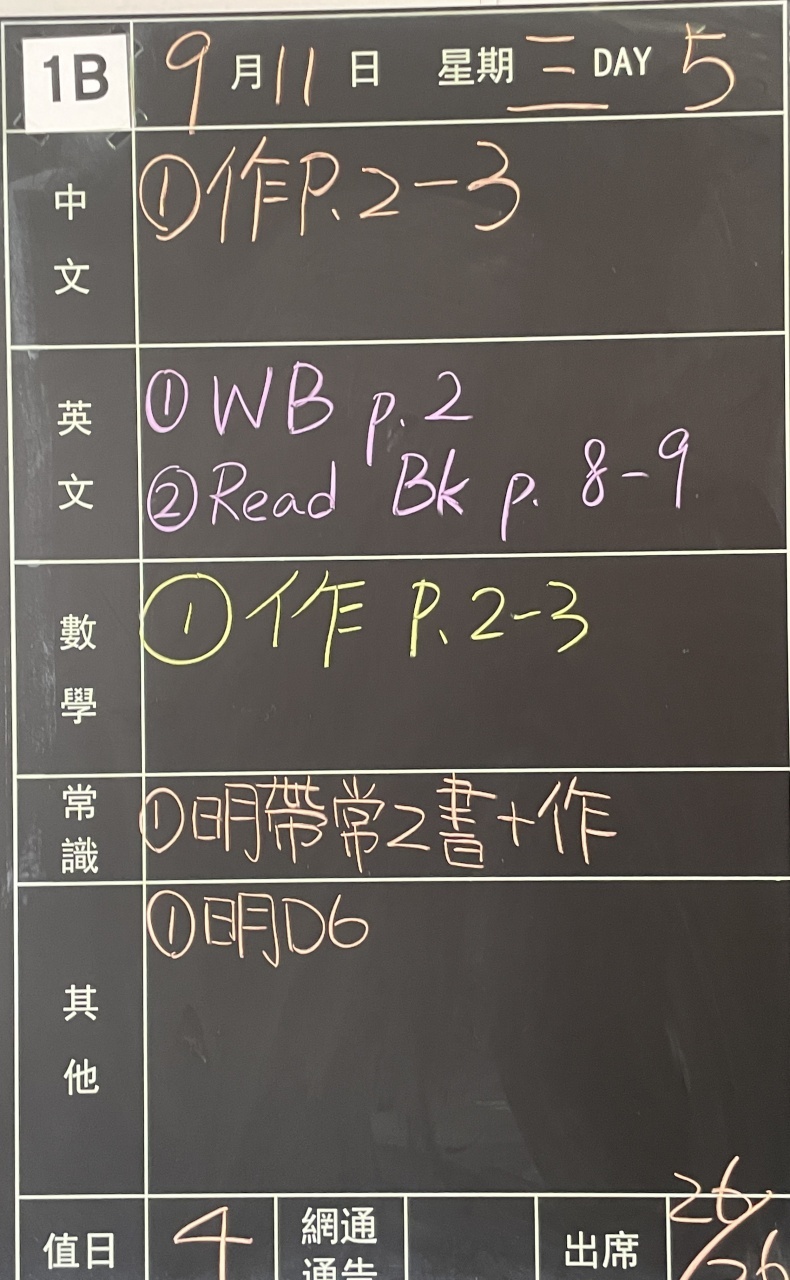 1B 9月11日 星期三 DAY 5
中文 ①作P.2-3
英文 ①WB p.2
②Read Bk p. 8-9
數學 ①作 P.2-3
常識 ①明帶常2書+作
其他 ①明D6
值日 4 網通通告 出席 26/26